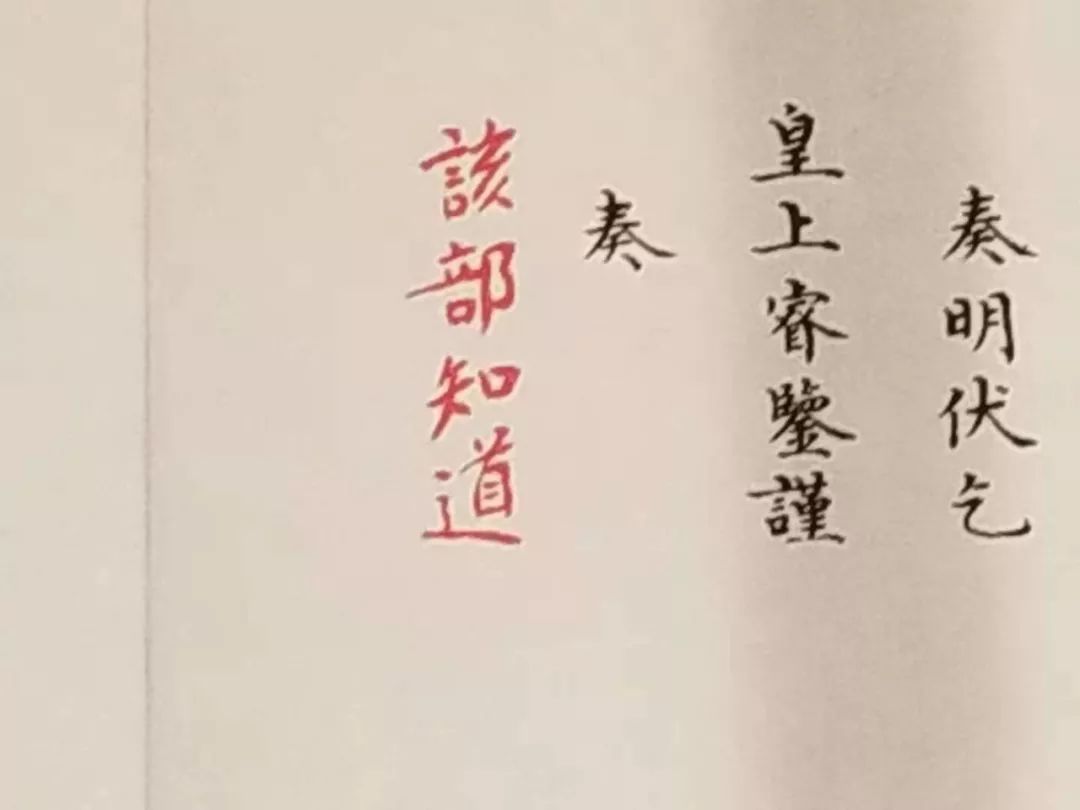 奏明伏乞
皇上睿鑒謹
奏
該部知道